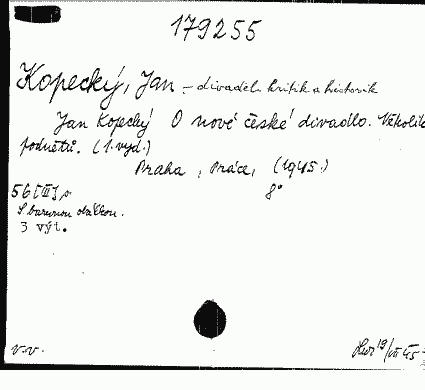 179255
Kopecký, Jan – divadel. kritik a historik
Jan Kopecký O nové české divadlo. Několik
podnětů. (1. vyd.)
Praha, Práce, (1945.)
56 [III] s. 8°
S barevnou obálkou.
3 výt.
v.v.